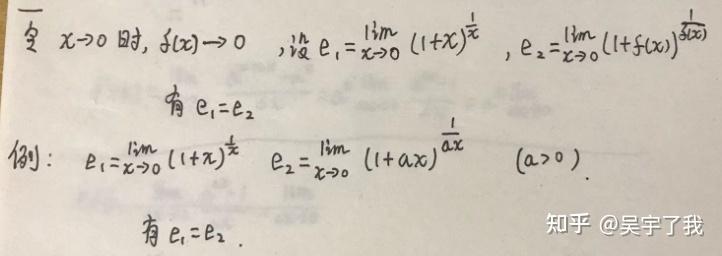 一
令 x→0 时, f(x)→0 ,设 e₁=lim x→0 (1+x)^(1/x) , e₂=lim x→0 (1+f(x))^(1/f(x))
有 e₁=e₂
例: e₁=lim x→0 (1+x)^(1/x) e₂=lim x→0 (1+ax)^(1/ax) (a>0).
有 e₁=e₂.
知乎 @吴宇了我